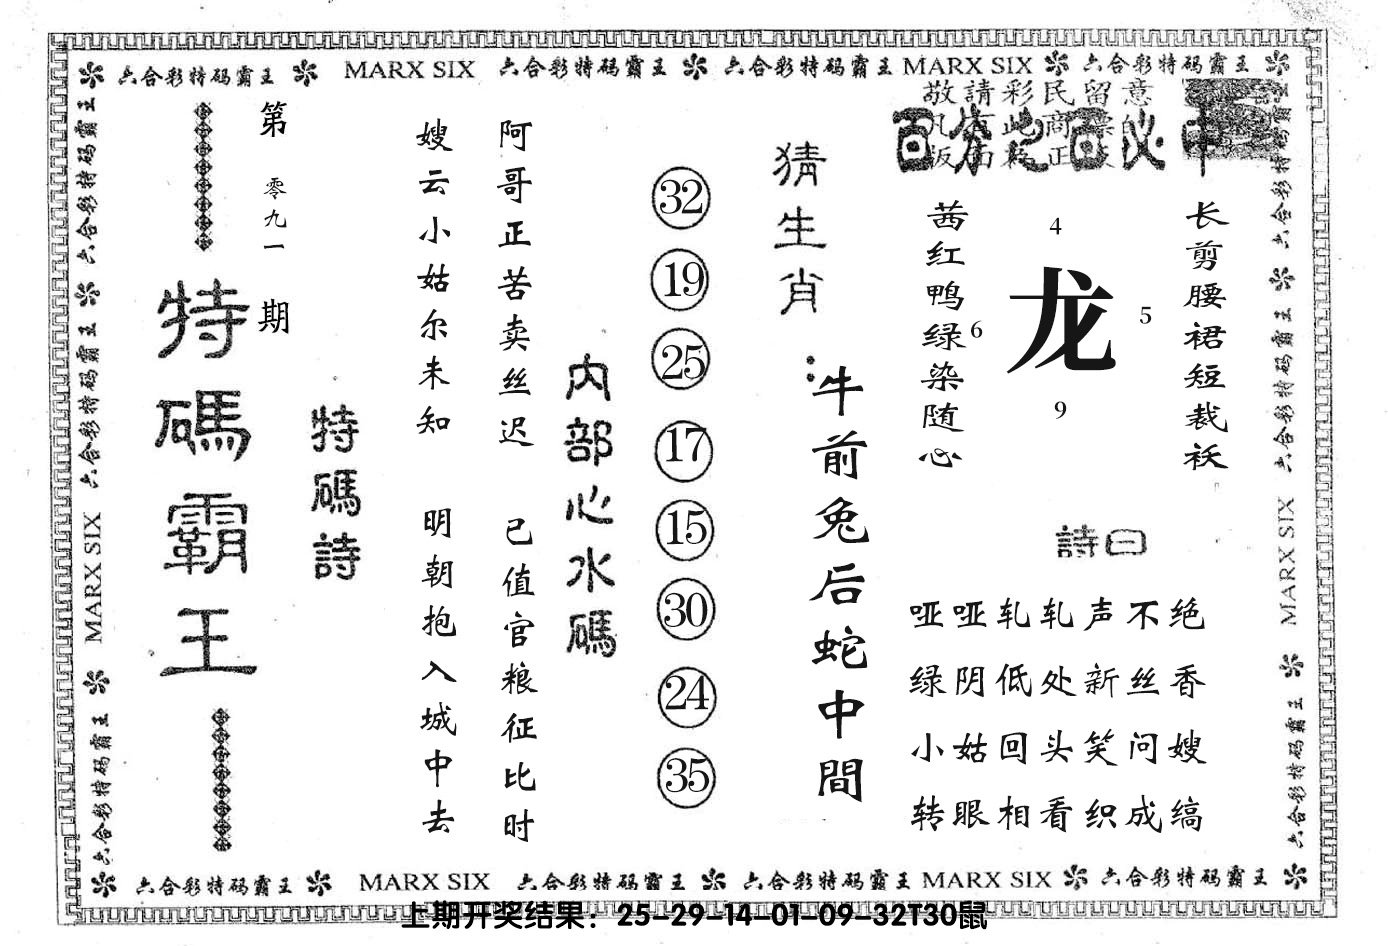 六合彩特码霸王 MARX SIX 六合彩特码霸王 六合彩特码霸王 MARX SIX 六合彩特码霸王
敬請彩民留意
百分之百必中
长剪腰裙短裁袄
4
龙
6
5
9
茜红鸭绿染随心
詩曰
哑哑轧轧声不绝
绿阴低处新丝香
小姑回头笑问嫂
转眼相看织成缟
猜生肖：
牛前兔后蛇中間
32
19
25
17
15
30
24
35
内部心水碼
阿哥正苦卖丝迟
已值官粮征比时
嫂云小姑尔未知
明朝抱入城中去
特碼詩
第零九一期
特碼霸王
六合彩特码霸王 六合彩特码霸王 MARX SIX 六合彩特码霸王
六合彩特码霸王 六合彩特码霸王 MARX SIX 六合彩特码霸王
六合彩特码霸王 MARX SIX 六合彩特码霸王 六合彩特码霸王 MARX SIX 六合彩特码霸王
上期开奖结果：25-29-14-01-09-32T30鼠